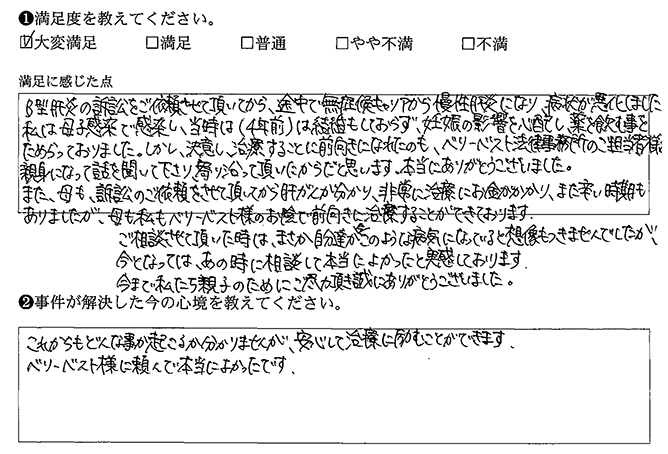 ❶満足度を教えてください。
☑大変満足 □満足 □普通 □やや不満 □不満
満足に感じた点
B型肝炎の訴訟をご依頼させて頂いてから、途中で無症候キャリアから慢性肝炎になり、病状が悪化しました。
私は母子感染で感染し、当時は(4年前)は結婚もしておらず、妊娠の影響を心配し、薬を飲む事を
ためらっておりました。しかし、決意し、治療することに前向きになれたのも、ベリーベスト法律事務所のご担当者様が
親身になって話を聞いて下さり、寄り沿って頂いたからだと思います。本当にありがとうございました。
また、母も、訴訟のご依頼をさせて頂いてから肝がんが分かり、非常に治療にお金がかかり、また辛い時期も
ありましたが、母も私もベリーベスト様のお陰で前向きに治療することができております。
ご相談させて頂いた時は、まさか、自分達がこのような病気になっていると想像もつきませんでしたが、
今となっては、あの時に相談して本当によかったと実感しております。
今まで私たち親子のためにご尽力頂き誠にありがとうございました。
❷事件が解決した今の心境を教えてください。
これからもどんな事が起こるか分かりませんが、安心して治療に励むことができます。
ベリーベスト様に頼んで本当によかったです。